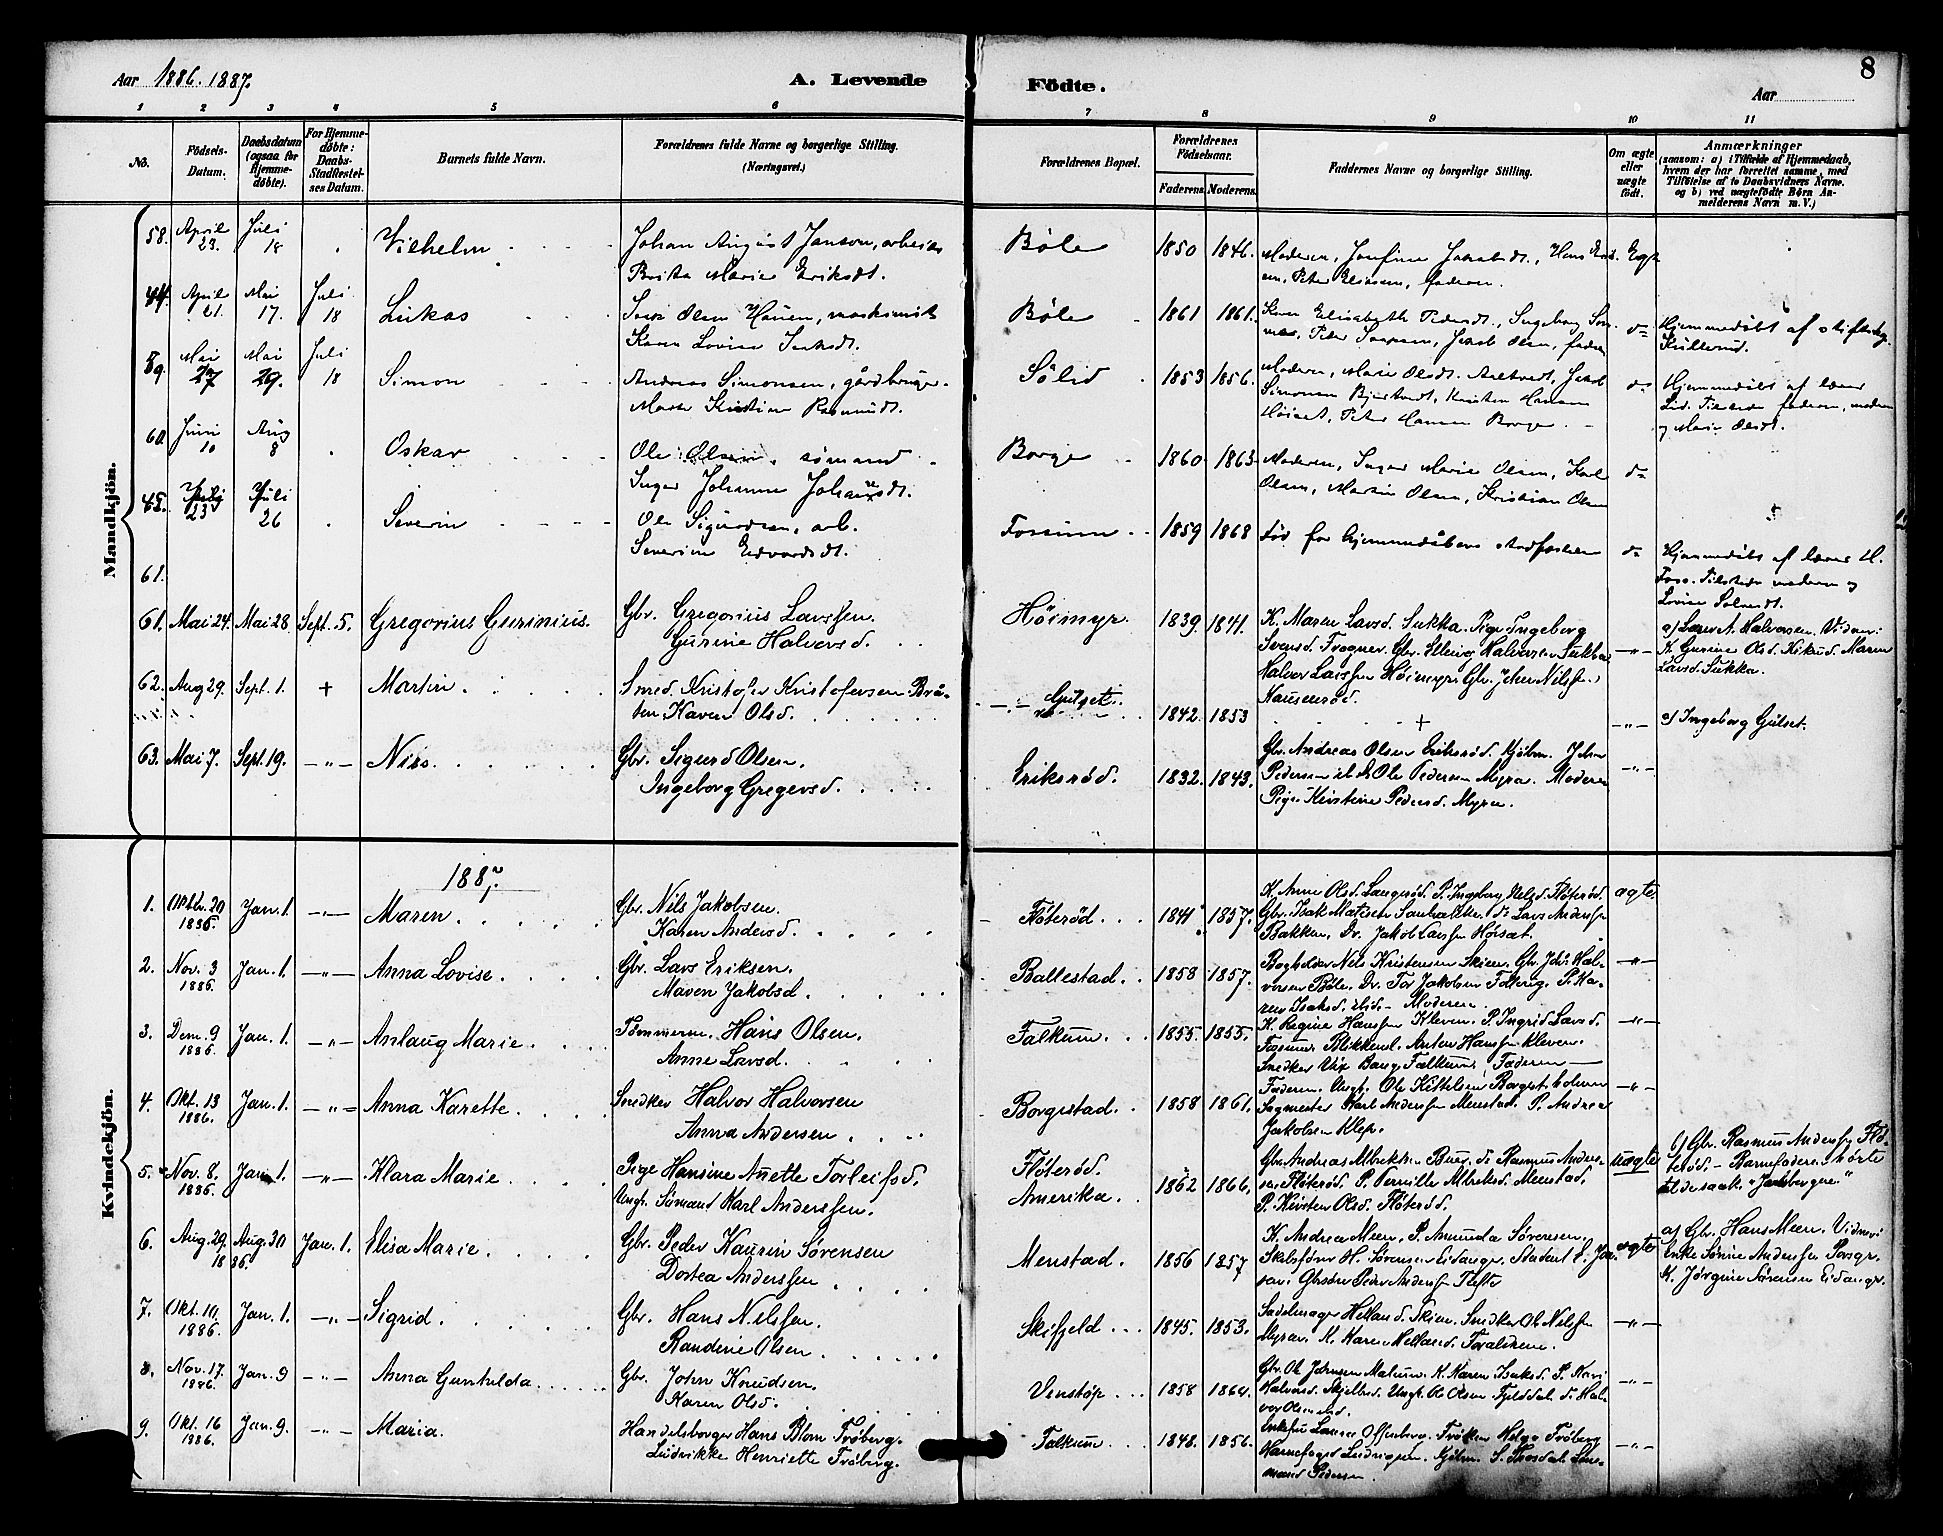 Aar 1886. 1887.
A. Levende Fødte.
8
Aar
1 2 3 4 5 6 7 8 9 10 11
No.
Fødsels-Datum.
Daabsdatum (ogsaa for Hjemmedøbte).
For Hjemmedøbte: Daabs-Stadfæstelses Datum.
Barnets fulde Navn.
Forældrenes fulde Navne og borgerlige Stilling. (Næringsvei.)
Forældrenes Bopæl.
Forældrenes Fødselsaar.
Faderens. Moderens.
Faddernes Navne og borgerlige Stilling.
Om ægte eller uægte født.
Anmærkninger
(saasom: a) i Tilfælde af Hjemmedaab,
hvem der har forrettet samme, med
Tilføielse af to Daabsvidners Navne.
og b) ved uægtefødte Børn Anmelderens Navn m. V.)
Mandkjøn.
58. April 23. Juli 18 Vilhelm
Johan August Janson, arbeider
Brita Marie Eriksdt.
Bøle 1850 1846.
Moderen, Josefine Jakobsdt., Hans
Peter Eliasen, faderen.
Egte
44. April 21. Mai 17. Juli 18 Lukas
Olsen Hauen,
Karen Lovise Isaksdt.
Bøle 1861 1861.
Karen Elisabeth Pedersdt., Ingeborg
Peter Isaksen, Jakob Olsen, faderen
do
Hjemmedøbt af
59. Mai 27 Mai 29. Juli 18 Simon
Andreas Simonsen, gårdbruger
Maren Kirstine Rasmusdt.
Sølid 1853 1856.
Moderen, Marie Olsdt. Aaltvedt, Jakob
Simonsen Bjerketvedt, Kristen Hansen
Høiset, Peter Hansen Borge
do
Hjemmedøbt af lærer
Lid. Tilstede faderen, moderen
og Marie Olsdt.
60. Juni 10 Aug 8 Oskar
Ole Olsen, sømand
Inger Johanne Johansdt.
Borge 1860 1863
Moderen, Inger Marie Olsen, Karl
Olsen, Martin Olsen, Kristian Olsen
do
45. 23 Juli 26 Severin
Ole Sigurdsen, arb.
Severine Edvardsdt.
Fossum 1859 1868
død før hjemmedåbens stadfæstelse
do
Hjemmedøbt af lærer H.
Foss. Tilstede moderen og
Lovise Solvesdt.
61.
61. Mai 24. Mai 28. Sept. 5. Gregorius Gurinius.
Gbr. Gregorius Larssen.
Gurine Halvorsd.
Høimyr. 1839. 1841.
K. Maren Larsd. Sukka. Pige Ingeborg
Svensd. Fragner. Gbr. Elling Halvorsen Sukka
Halvor Larssen Høimyr. Gbr. Johan Nilssen
Hauenrød.
-"-
a) Lærer A. Halvorsen. Vidner:
K. Gurine Olsd. Kikud. Maren
Larsd. Sukka.
62. Aug 29. Sept. 1. + Martin.
Smed. Kristofer Kristofersen Bråten.
Karen Olsd.
Gulset. 1842. 1853
+
-"-
a) Ingeborg Gulset.
63. Mai 7. Sept. 19. -"- Nils.
Gbr. Sigurd Olsen.
Ingeborg Gregersd.
Eriksrød. 1832. 1843.
Gbr. Andreas Olsen Eriksrød. Kjøbm. Johan
Pedersen ibid. Ole Pedersen Myra. Moderen
Pige Kirstine Pedersd. Myra.
-"-
Kvindekjøn.
1887.
1. Oktbr. 20 1886. Jan. 1. -"- Maren.
Gbr. Nils Jakobsen.
Karen Andersd.
Fløterød 1841 1857.
K. Anne Olsd. Langerød. P. Ingeborg Nelsd. Fløterød.
Gbr. Isak Matisen Do. Lars Anderssen
Bakken. Dr. Jakob Larssen Høisæt.
ægte.
2. Nov. 3 1886. Jan. 1. -"- Anna Lovise.
Gbr. Lars Eriksen.
Maren Jakobsd.
Ballestad 1858 1857.
Bogholder Nils Kristensen Skien. Gbr. Johs. Halvorsen
Bøle. Dr. Tor Jakobsen Follaug. P. Karen
Isaksd. ibid. Moderen.
-"-
3. Dcm. 9 1886. Jan. 1. -"- Anlaug Marie.
Tømmerm. Hans Olsen.
Anne Larsd.
Falkum 1855. 1855.
K. Regine Hanssen Kleven. P. Ingrid Larsd.
Fossum. Blikkensl. Anton Hanssen Kleven.
Snedker Bang Falkum, Faderen
-"-
4. Okt. 13 1886. Jan. 1. -"- Anna Karette.
Snedker Halvor Halvorsen
Anna Andersen
Borgestad 1858 1861.
Faderen. Ungk. Ole Kittelsen Borgest. holmen
Sagmester Karl Anderssen Menstad. P. Andrea
Jakobsen Klep.
-"-
5. Nov. 8. 1886. Jan. 1. -"- Klara Marie
Pige Hansine Anette Torleifsd.
Ungk. Sømand Karl Anderssen.
Fløterød.
Amerika. 1862 1866.
Gbr. Andreas Albrektsen Buer. do. Rasmus Anderssen
Fløterød. P. Pernille Albreksd. Menstad.
P. Kirsten Olsd. Fløterød.
uægte
b) Gbr. Rasmus Anderssen Fløterød.
- Barnefaderen hørte
til desaak. "Jarlsbergere"
6. Aug. 29. 1886. Aug. 30 Jan. 1. Elisa Marie.
Gbr. Peder Kaurin Sørensen
Dortea Anderssen
Menstad. 1856 1857
K. Andrea Meen. P. Amunda Sørensen.
Skibsfører H. Sørensen Eidanger. Student
Gbrsøn Peder Anderssen Tufte
ægte
a) Gbr. Hans Meen. Vidner:
Enke Sønne Anderssen Porsgr.
K. Jørgine Sørensen Eidangr.
7. Okt. 10. 1886. Jan. 1. -"- Sigrid.
Gbr. Hans Nelssen.
Randine Olsen
Skifjeld 1845. 1853.
Sadelmager Helland. Skien. Snedker Ol. Nelssen
Myra. K. Karen Helland. Forældrene.
-"-
8. Nov. 17. 1886. Jan. 9 -"- Anna Gunhilda
Gbr. John Knudsen.
Karen Olsd.
Venstøp 1858 1864.
Gbr. Ole Johnsen Malum. K. Karen Isaksd. P. Kari
Halvorsd. Ungk. Ole Olsen Fjelddal. do. Halvor
Olsen ibid.
-"-
9. Okt. 16 1886. Jan. 9. -"- Maria.
Handelsborger Hans Blom Frøberg.
Ludvikke Henriette Frøberg.
Falkum 1848. 1856.
Enkefru Laurae Offenberg. Frøken Helga Frøberg
Havnefoged Ludvigsen. Kjøbm. S. Thosdal. Lensmand
Pedersen.
-"-